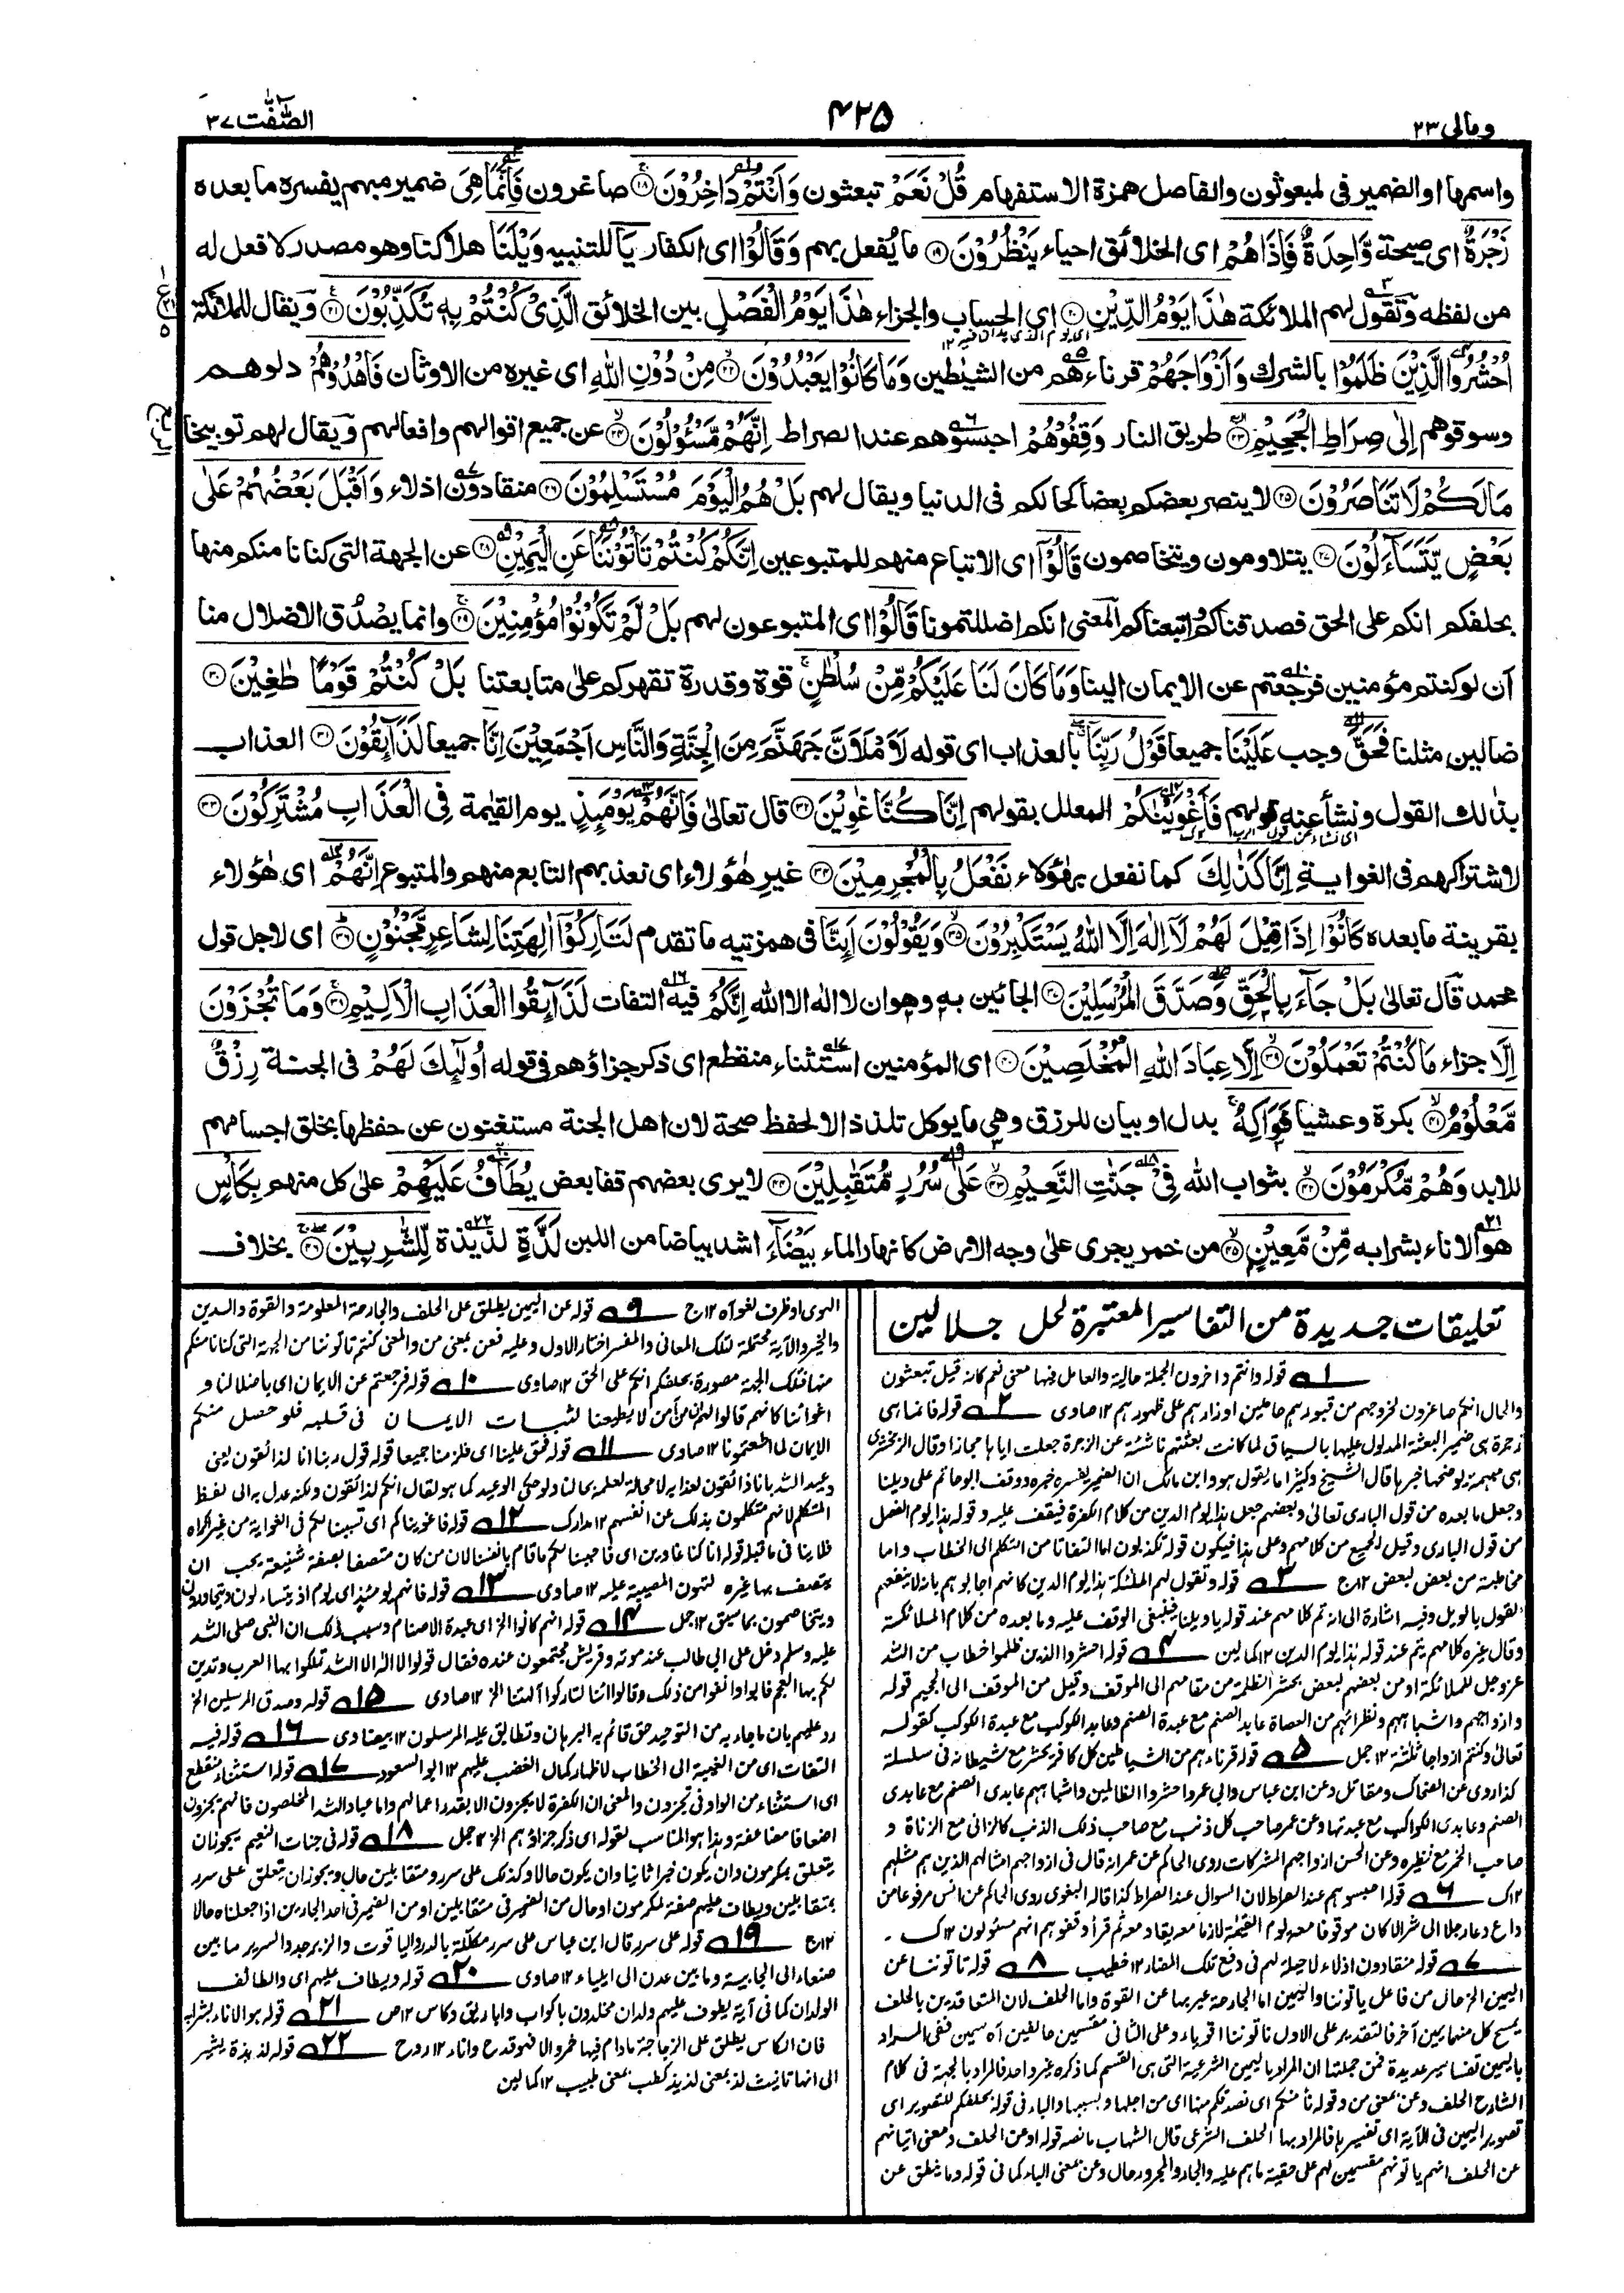 ومالی ٢٣
۴۲۵
الصّٰٓفّٰت ٣٧
واسمها او الضمير في لمبعوثون والفاصل همزة الاستفهام قُلْ نَعَمْ تبعثون وَاَنْتُمْ دَاخِرُوْنَ ۱۸ صاغرون فَاِنَّمَا هِيَ ضمير مبهم يفسره ما بعده
زَجْرَةٌ اى صيحة وَّاحِدَةٌ فَاِذَا هُمْ اى الخلائق احياء يَنْظُرُوْنَ ۱۹ ما يُفعل بهم وَقَالُوْا اى الكفار يَا للتنبيه وَيْلَنَا هلاكنا وهو مصدر لا فعل له
من لفظه وتقول لهم الملائكة هٰذَا يَوْمُ الدِّيْنِ ۲۰ اى الحساب والجزاء هٰذَا يَوْمُ الْفَصْلِ بين الخلائق الَّذِيْ كُنْتُمْ بِهٖ تُكَذِّبُوْنَ ۲۱ ويقال للملائكة
اُحْشُرُوا الَّذِيْنَ ظَلَمُوْا بالشرك وَاَزْوَاجَهُمْ قرناءهم من الشيٰطين وَمَا كَانُوْا يَعْبُدُوْنَ ۲۲ مِنْ دُوْنِ اللّٰهِ اى غيره من الاوثان فَاهْدُوْهُمْ دلوهم
وسوقوهم اِلٰى صِرَاطِ الْجَحِيْمِ ۲۳ طريق النار وَقِفُوْهُمْ احبسوهم عند الصراط اِنَّهُمْ مَّسْـُٔوْلُوْنَ ۲۴ عن جميع اقوالهم وافعالهم ويقال لهم توبيخا
مَالَكُمْ لَا تَنَاصَرُوْنَ ۲۵ لا ينصر بعضكم بعضا كحالكم في الدنيا ويقال لهم بَلْ هُمُ الْيَوْمَ مُسْتَسْلِمُوْنَ ۲۶ منقادون اذلاء وَاَقْبَلَ بَعْضُهُمْ عَلٰى
بَعْضٍ يَّتَسَآءَلُوْنَ ۲۷ يتلاومون ويتخاصمون قَالُوْٓا اى الاتباع منهم للمتبوعين اِنَّكُمْ كُنْتُمْ تَاْتُوْنَنَا عَنِ الْيَمِيْنِ ۲۸ عن الجهة التى كنا نامنكم منها
بحلفكم انكم على الحق فصدقناكم واتبعناكم المعنى انكم اضللتمونا قَالُوْا اى المتبوعون لهم بَلْ لَّمْ تَكُوْنُوْا مُؤْمِنِيْنَ ۲۹ وانما يصدُق الاضلال منا
آن لو كنتم مؤمنين فرجعتم عن الايمان الينا وَمَا كَانَ لَنَا عَلَيْكُمْ مِّنْ سُلْطٰنٍ قوة وقدرة تقهركم على متابعتنا بَلْ كُنْتُمْ قَوْمًا طٰغِيْنَ ۳۰
ضالين مثلنا فَحَقَّ وجب عَلَيْنَا جميعا قَوْلُ رَبِّنَا بالعذاب اى قوله لَاَمْلَاَنَّ جَهَنَّمَ مِنَ الْجِنَّةِ وَالنَّاسِ اَجْمَعِيْنَ اِنَّا جميعا لَذَآئِقُوْنَ ۳۱ العذاب
بذلك القول ونشأ عنه قولهم فَاَغْوَيْنٰكُمْ المعلل بقولهم اِنَّا كُنَّا غٰوِيْنَ ۳۲ قال تعالى فَاِنَّهُمْ يَوْمَئِذٍ يوم القيٰمة فِى الْعَذَابِ مُشْتَرِكُوْنَ ۳۳
لاشتراكهم فى الغواية اِنَّا كَذٰلِكَ كما نفعل بهٰؤلاء نَفْعَلُ بِالْمُجْرِمِيْنَ ۳۴ غير هٰؤلاء اى نعذبهم التابع منهم والمتبوع اِنَّهُمْ اى هٰؤلاء
بقرينة ما بعده كَانُوْٓا اِذَا قِيْلَ لَهُمْ لَآ اِلٰهَ اِلَّا اللّٰهُ يَسْتَكْبِرُوْنَ ۳۵ وَيَقُوْلُوْنَ اَئِنَّا فى همزتيه ما تقدم لَتَارِكُوْٓا اٰلِهَتِنَا لِشَاعِرٍ مَّجْنُوْنٍ ۳۶ اى لاجل قول
محمد قال تعالى بَلْ جَآءَ بِالْحَقِّ وَصَدَّقَ الْمُرْسَلِيْنَ ۳۷ الجائين به وهو ان لا اله الا الله اِنَّكُمْ فيه التفات لَذَآئِقُوا الْعَذَابِ الْاَلِيْمِ ۳۸ وَمَا تُجْزَوْنَ
اِلَّا جزاء مَا كُنْتُمْ تَعْمَلُوْنَ ۳۹ اِلَّا عِبَادَ اللّٰهِ الْمُخْلَصِيْنَ ۴۰ اى المؤمنين استثناء منقطع اى ذكر جزاؤهم فى قوله اُولٰٓئِكَ لَهُمْ فى الجنة رِزْقٌ
مَّعْلُوْمٌ ۴۱ بكرة وعشيا فَوَاكِهُ بدل او بيان للرزق وهى ما يوكل تلذذا لا لحفظ صحة لان اهل الجنة مستغنون عن حفظها بخلق اجسامهم
للابد وَهُمْ مُّكْرَمُوْنَ ۴۲ بثواب الله فِيْ جَنّٰتِ النَّعِيْمِ ۴۳ عَلٰى سُرُرٍ مُّتَقٰبِلِيْنَ ۴۴ لا يرى بعضهم قفا بعض يُطَافُ عَلَيْهِمْ على كل منهم بِكَاْسٍ
هو الاناء بشرابه مِّنْ مَّعِيْنٍ ۴۵ من خمر يجرى على وجه الارض كانهار الماء بَيْضَآءَ اشد بياضا من اللبن لَذَّةٍ لذيذة لِّلشّٰرِبِيْنَ ۴۶ بخلاف
تعليقات جديدة من التفاسير المعتبرة لحل جلالين
۱ قوله وانتم داخرون الجملة حالية والعامل فيها معنى نعم كانه قيل تبعثون
والحال انكم صاغرون لخروجهم من قبورهم حاملين اوزارهم على ظهورهم ۱۲ صاوى ۲ قوله فانما هى
زجرة هى ضمير البعثة المدلول عليها بالسياق لما كانت بعثتهم ناشئة عن الزجرة جعلت اياها مجازا وقال الزمخشرى
هى مبهمة يوضحها خبرها قال الشيخ وكثيرا ما يقول هو وابن مالك ان الضمير يفسره خبره ووقف ابو حاتم على ويلنا
وجعل ما بعده من قول البارى تعالى وبعضهم جعل هذا يوم الدين من كلام الكفرة فيقف عليه وقوله هذا يوم الفصل
من قول البارى وقيل الجميع من كلامهم وعلى هذا فيكون قوله تكذبون اما التفاتا من التكلم الى الخطاب واما
مخاطبة من بعض لبعض ۱۲ ج ۳ قوله وتقول لهم الملٰئكة هذا يوم الدين كانهم اجابوهم بانه لا ينفعهم
القول بالويل وفيه اشارة الى انه تم كلامهم عند قوله يا ويلنا فينبغى الوقف عليه وما بعده من كلام الملائكة
وقال غيره كلامهم يتم عند قوله هذا يوم الدين ۱۲ كمالين ۴ قوله احشروا الذين ظلموا خطاب من الله
عز وجل للملائكة او من بعضهم لبعض بحشر الظلمة من مقامهم الى الموقف وقيل من الموقف الى الجحيم قوله
وازواجهم واشباههم ونظرائهم من العصاة عابد الصنم مع عبدة الصنم وعابد الكوكب مع عبدة الكوكب كقوله
تعالى وكنتم ازواجا ثلٰثة ۱۲ جمل ۵ قوله قرناءهم من الشياطين كل كافر يحشر مع شيطانه فى سلسلة
كذا روى عن الضحاك ومقاتل وعن ابن عباس وابى عمرو احشروا الظالمين واشباههم عابدى الصنم مع عابدى
الصنم وعابدى الكواكب مع عبدتها وعن عمر صاحب كل ذنب مع صاحب ذلك الذنب كالزانى مع الزناة و
صاحب الخمر مع نظيره وعن الحسن ازواجهم المشركات روى الحاكم عن عمر انه قال فى ازواجهم امثالهم الذين هم مثلهم
۱۲ ك ۶ قوله احبسوهم عند الصراط لان السوال عند الصراط كذا قاله البغوى روى الحاكم عن انس مرفوعا من
داع دعا رجلا الى شر الا كان موقوفا معه يوم القيٰمة لازما معه يقاد معه ثم قرأ وقفوهم انهم مسئولون ۱۲ ك
۷ قوله منقادون اذلاء لا حيلة لهم فى دفع تلك المضار ۱۲ خطيب ۸ قوله تاتوننا عن
اليمين الخ حال من فاعل ياتوننا واليمين اما الجارحة عبر بها عن القوة واما الحلف لان المتعاقدين بالحلف
يمسح كل منهما يمين آخر فالتقدير على الاول تاتوننا اقوياء وعلى الثانى مقسمين حالفين آه سمين ففى المراد
باليمين تفاسير عديدة فمن جملتها ان المراد باليمين الشرعية التى هى القسم كما ذكره غير واحد فالمراد بالجهة فى كلام
الشارح الحلف وعن بمعنى من وقوله نأمنكم اى نصدقكم منها اى من اجلها وبسببها والباء فى قوله بحلفكم للتصوير اى
تصوير اليمين فى الآية اى تفسيرها فالمراد بها الحلف الشرعى قال الشهاب ما نصه قوله او عن الحلف ومعنى اتيانهم
عن الحلف انهم ياتونهم مقسمين لهم على حقية ما هم عليه والجار والمجرور حال وعن بمعنى الباء كما فى قوله وما ينطق عن
الهوى او ظرف لغو آه ۱۲ ج ۹ قوله عن اليمين يطلق على الحلف والجارحة المعلومة والقوة والدين
والخير والآية محتملة لتلك المعانى والمفسر اختار الاول وعليه فعن بمعنى من والمعنى كنتم تاتوننا من الجهة التى كنا نامنكم
منها فتلك الجهة مصورة بحلفكم انكم على الحق ۱۲ صاوى ۱۰ قوله فرجعتم عن الايمان اى باضلالنا و
اغوائنا كانهم قالوا لهم ان من آمن لا يطيعنا لثبات الايمان فى قلبه فلو حصل منكم
الايمان لما اطعتمونا ۱۲ صاوى ۱۱ قوله فحق علينا اى فلزمنا جميعا قوله قول ربنا انا لذائقون يعنى
وعيد الله بانا ذائقون لعذابه لا محالة لعلمه بحالنا ولو حكى الوعيد كما هو لقال انكم لذائقون ولكنه عدل به الى لفظ
المتكلم لانهم متكلمون بذلك عن انفسهم ۱۲ مدارك ۱۲ قوله فاغويناكم اى تسببنا لكم فى الغواية من غير اكراه
فلا ينافى ما قبله قوله انا كنا غاوين اى فاحببنا لكم ما قام بانفسنا لان من كان متصفا بصفة شنيعة يحب ان
يتصف بها غيره لتهون المصيبة عليه ۱۲ صاوى ۱۳ قوله فانهم يومئذ اى يوم اذ يتساءلون ويتحاورون
ويتخاصمون بما سبق ۱۲ جمل ۱۴ قوله انهم كانوا الخ اى عبدة الاصنام وسبب ذلك ان النبى صلى الله
عليه وسلم دخل على ابى طالب عند موته وقريش مجتمعون عنده فقال قولوا لا اله الا الله تملكوا بها العرب وتدين
لكم بها العجم فابوا وانفوا من ذلك وقالوا ائنا لتاركوا آلهتنا الخ ۱۲ صاوى ۱۵ قوله وصدق المرسلين الخ
رد عليهم بان ما جاء به من التوحيد حق قائم به البرهان وتطابق عليه المرسلون ۱۲ بيضاوى ۱۶ قوله فيه
التفات اى من الغيبة الى الخطاب لاظهار كمال الغضب عليهم ۱۲ ابو السعود ۱۷ قوله استثناء منقطع
اى استثناء من الواو فى تجزون والمعنى ان الكفرة لا يجزون الا بقدر اعمالهم واما عباد الله المخلصون فانهم يجزون
اضعافا مضاعفة وهذا هو المناسب لقوله اى ذكر جزاؤهم الخ ۱۲ جمل ۱۸ قوله فى جنات النعيم يجوز ان
يتعلق بمكرمون وان يكون خبرا ثانيا وان يكون حالا وكذلك على سرر ومتقابلين حال ويجوز ان يتعلق على سرر
بمتقابلين ويطاف عليهم صفة لمكرمون او حال من الضمير فى متقابلين او من الضمير فى احد الجارين اذا جعلناه حالا
۱۲ ج ۱۹ قوله على سرر قال ابن عباس على سرر مكللة بالدر والياقوت والزبرجد والسرير ما بين
صنعاء الى الجابية وما بين عدن الى ايلياء ۱۲ صاوى ۲۰ قوله ويطاف عليهم اى والطائف
الولدان كما فى آية يطوف عليهم ولدان مخلدون باكواب واباريق وكاس ۱۲ ص ۲۱ قوله هو الاناء بشرابه
فان الكاس يطلق على الزجاجة مادام فيها خمر والا فهو قدح واناء ۱۲ روح ۲۲ قوله لذيذة يشير
الى انها تانيث لذ بمعنى لذيذ كطب بمعنى طبيب ۱۲ كمالين